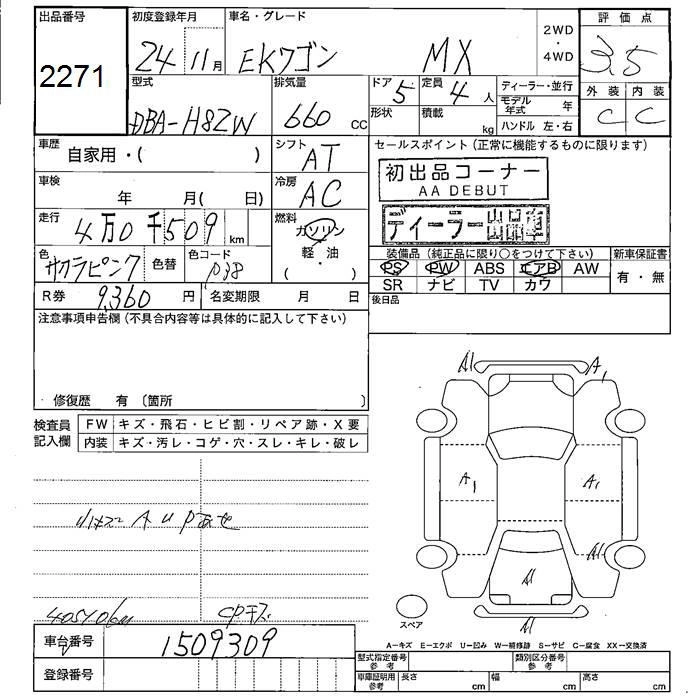 出品番号 初度登録年月 車名・グレード 2WD・4WD 評価点
2271 24 11月 EKワゴン MX 3.5
型式 排気量 ドア 定員 ディーラー・並行 外装 内装
DBA-H82W 660 CC 5 4人 モデル年式 年 C C
形状 積載 kg ハンドル 左・右
車歴 自家用・( ) シフト AT セールスポイント(正常に機能するものに限ります)
初出品コーナー
AA DEBUT
車検 年 月( 日) 冷房 AC
ディーラー出品車
走行 4万0千509km 燃料 ガソリン 軽・油 ( ・ )
色 サクラピンク 色替 色コード P38
装備品(純正品に限り○をつけて下さい) 新車保証書
PS PW ABS エアB AW 有・無
SR ナビ TV カワ
R券 9,360円 名変期限 月 日 後日品
注意事項申告欄(不具合内容等は具体的に記入して下さい)
修復歴 有 〔箇所 〕
検査員記入欄 FW キズ・飛石・ヒビ割・リペア跡・X要
内装 キズ・汚レ・コゲ・穴・スレ・キレ・破レ
A1 A1
A1 A1
A1
A1
小キズ AUPあせ
CPキズ
A1
スペア
車台番号 1509309
A=キズ E=エクボ U=凹み W=補修跡 S=サビ C=腐食 XX=交換済
登録番号
型式指定番号参考 類別区分番号参考
車庫証明用参考 長さ cm 幅 cm 高さ cm